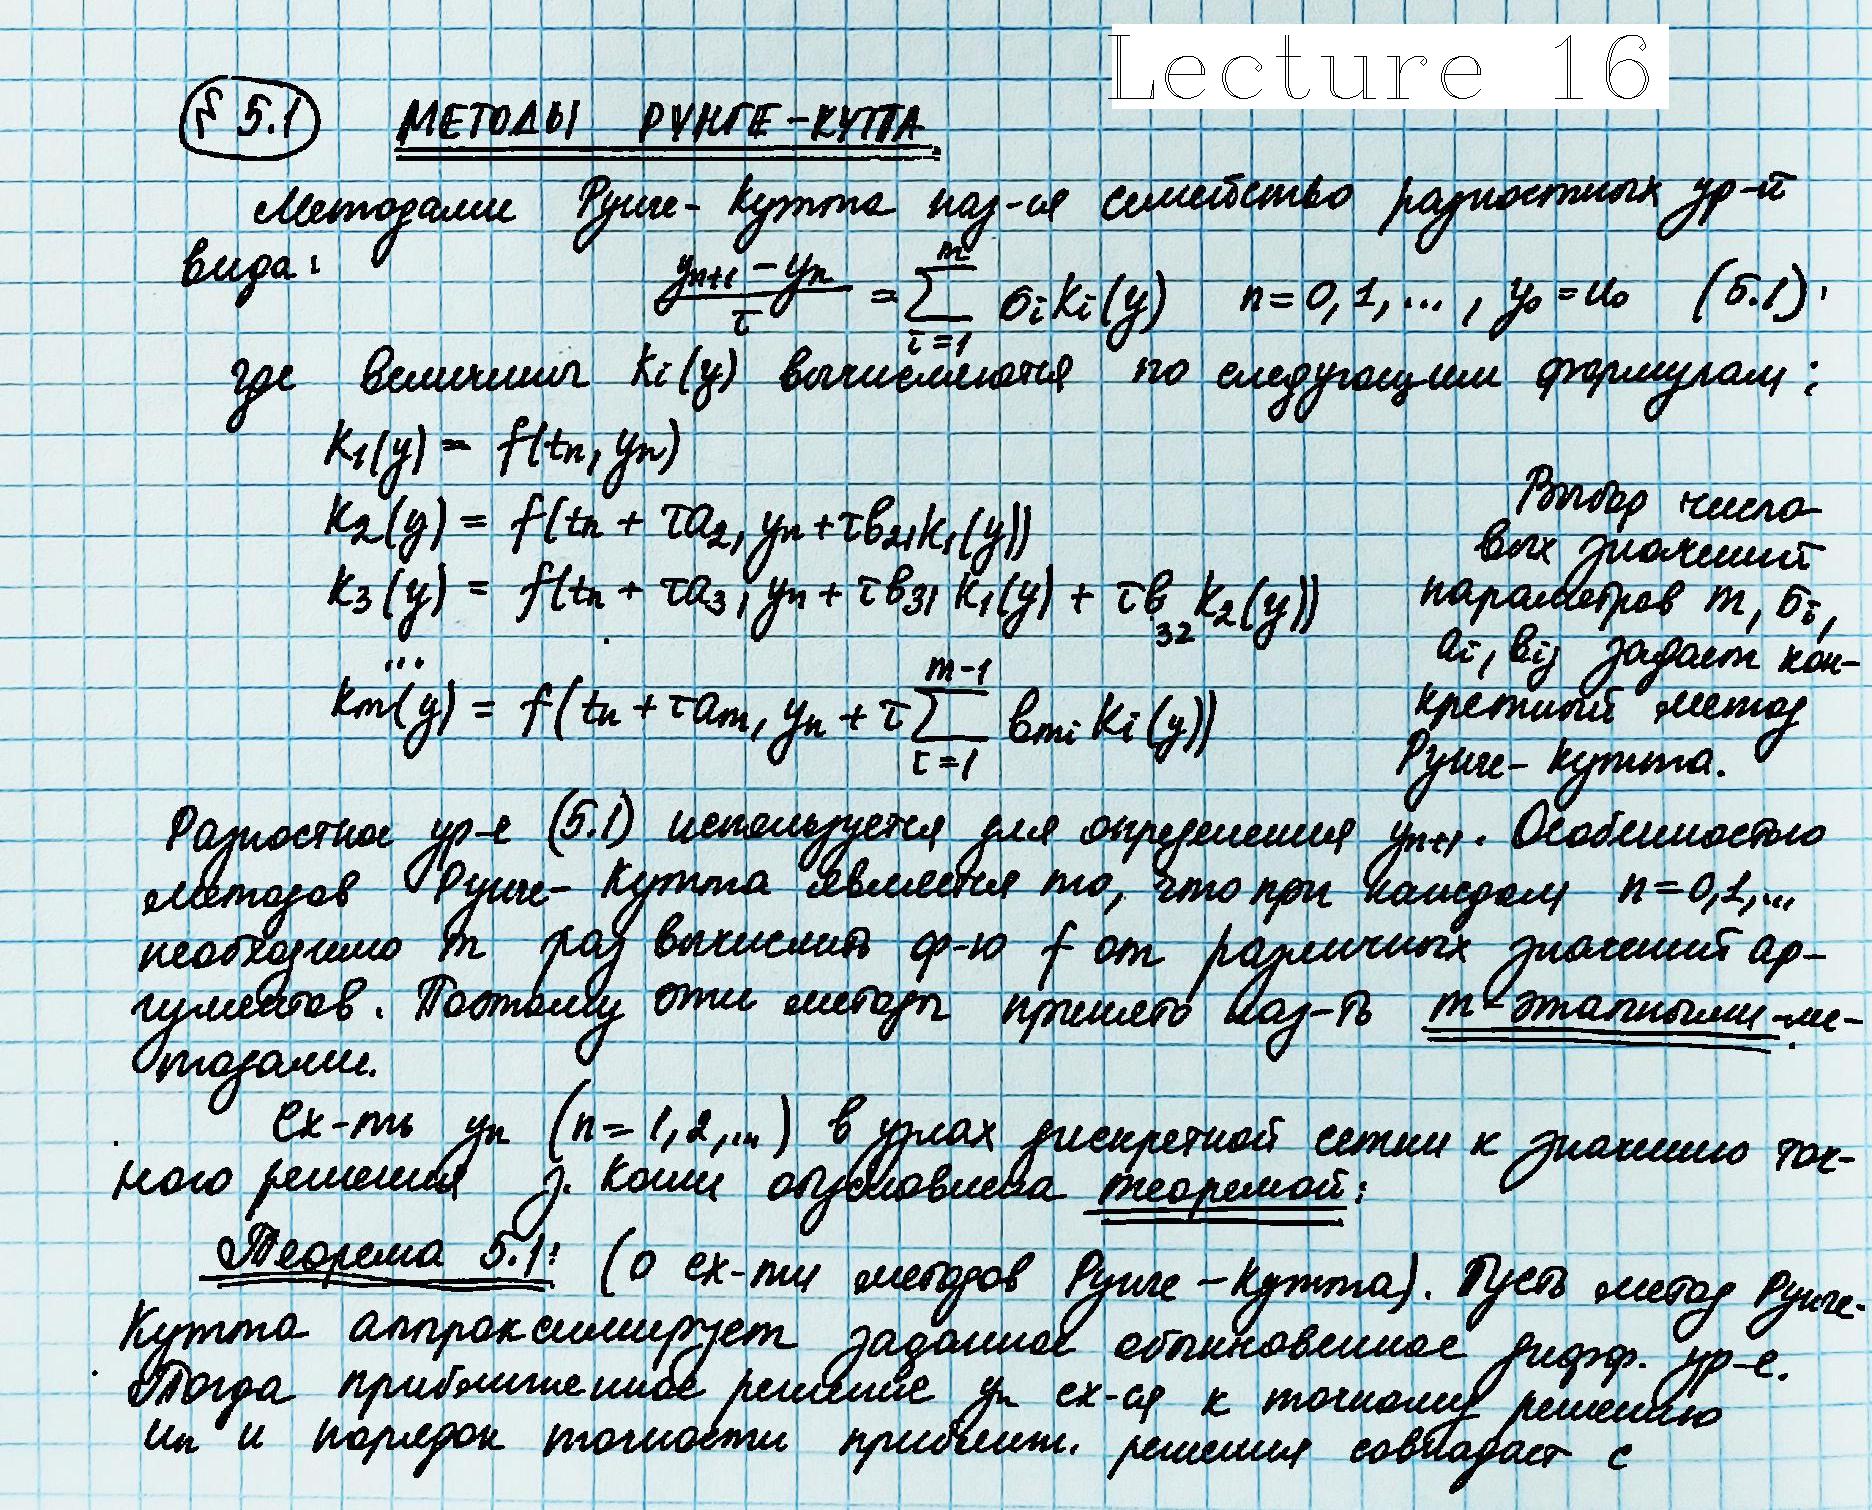 Lecture 16
§ 5.1 МЕТОДЫ РУНГЕ-КУТТА
Методами Рунге-Кутта наз-ся семейство разностных ур-й
вида:
(y_{n+1} - y_n)/τ = ∑_{i=1}^{m} σ_i K_i(y) n=0,1,..., y_0 = u_0 (5.1)
где величины K_i(y) вычисляются по следующим формулам:
K_1(y) = f(t_n, y_n)
K_2(y) = f(t_n + τa_2, y_n + τb_{21}K_1(y))
K_3(y) = f(t_n + τa_3, y_n + τb_{31} K_1(y) + τb_{32} K_2(y))
...
K_m(y) = f(t_n + τa_m, y_n + τ ∑_{i=1}^{m-1} b_{mi} K_i(y))
Выбор число-
вых значений
параметров m, σ_i,
a_i, b_{ij} задает кон-
кретный метод
Рунге-Кутта.
Разностное ур-е (5.1) используется для определения y_{n+1}. Особенностью
методов Рунге-Кутта является то, что при каждом n=0,1,...
необходимо m раз вычислить ф-ю f от различных значений ар-
гументов. Поэтому эти методы принято наз-ть m-этапными ме-
тодами.
Сх-ть y_n (n=1,2,...) в узлах дискретной сетки к значению точ-
ного решения з. Коши обусловлена теоремой:
Теорема 5.1: (о сх-ти методов Рунге-Кутта). Пусть метод Рунге-
Кутта аппроксимирует заданное обыкновенное дифф. ур-е.
Тогда приближенное решение y_n сх-ся к точному решению
u_n и порядок точности приближ. решения совпадает с